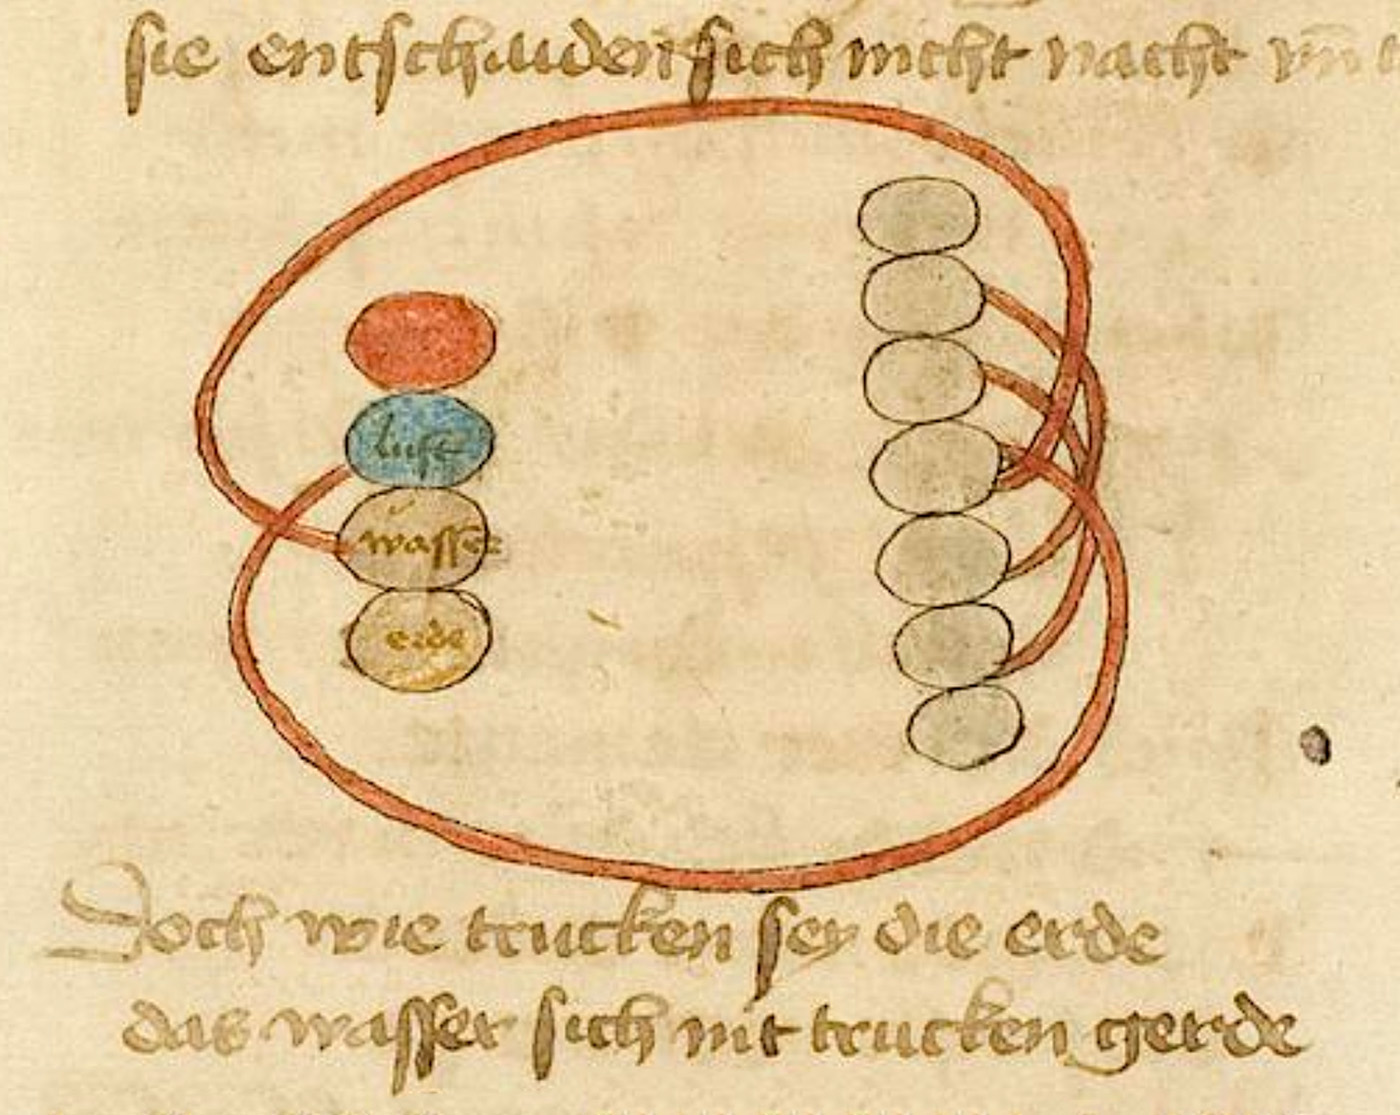 sie entschaiden sich nicht nacht vn̄
luft
wasser
erde
Doch wie trucken sey die erde
das wasser sich nit trucken gerde